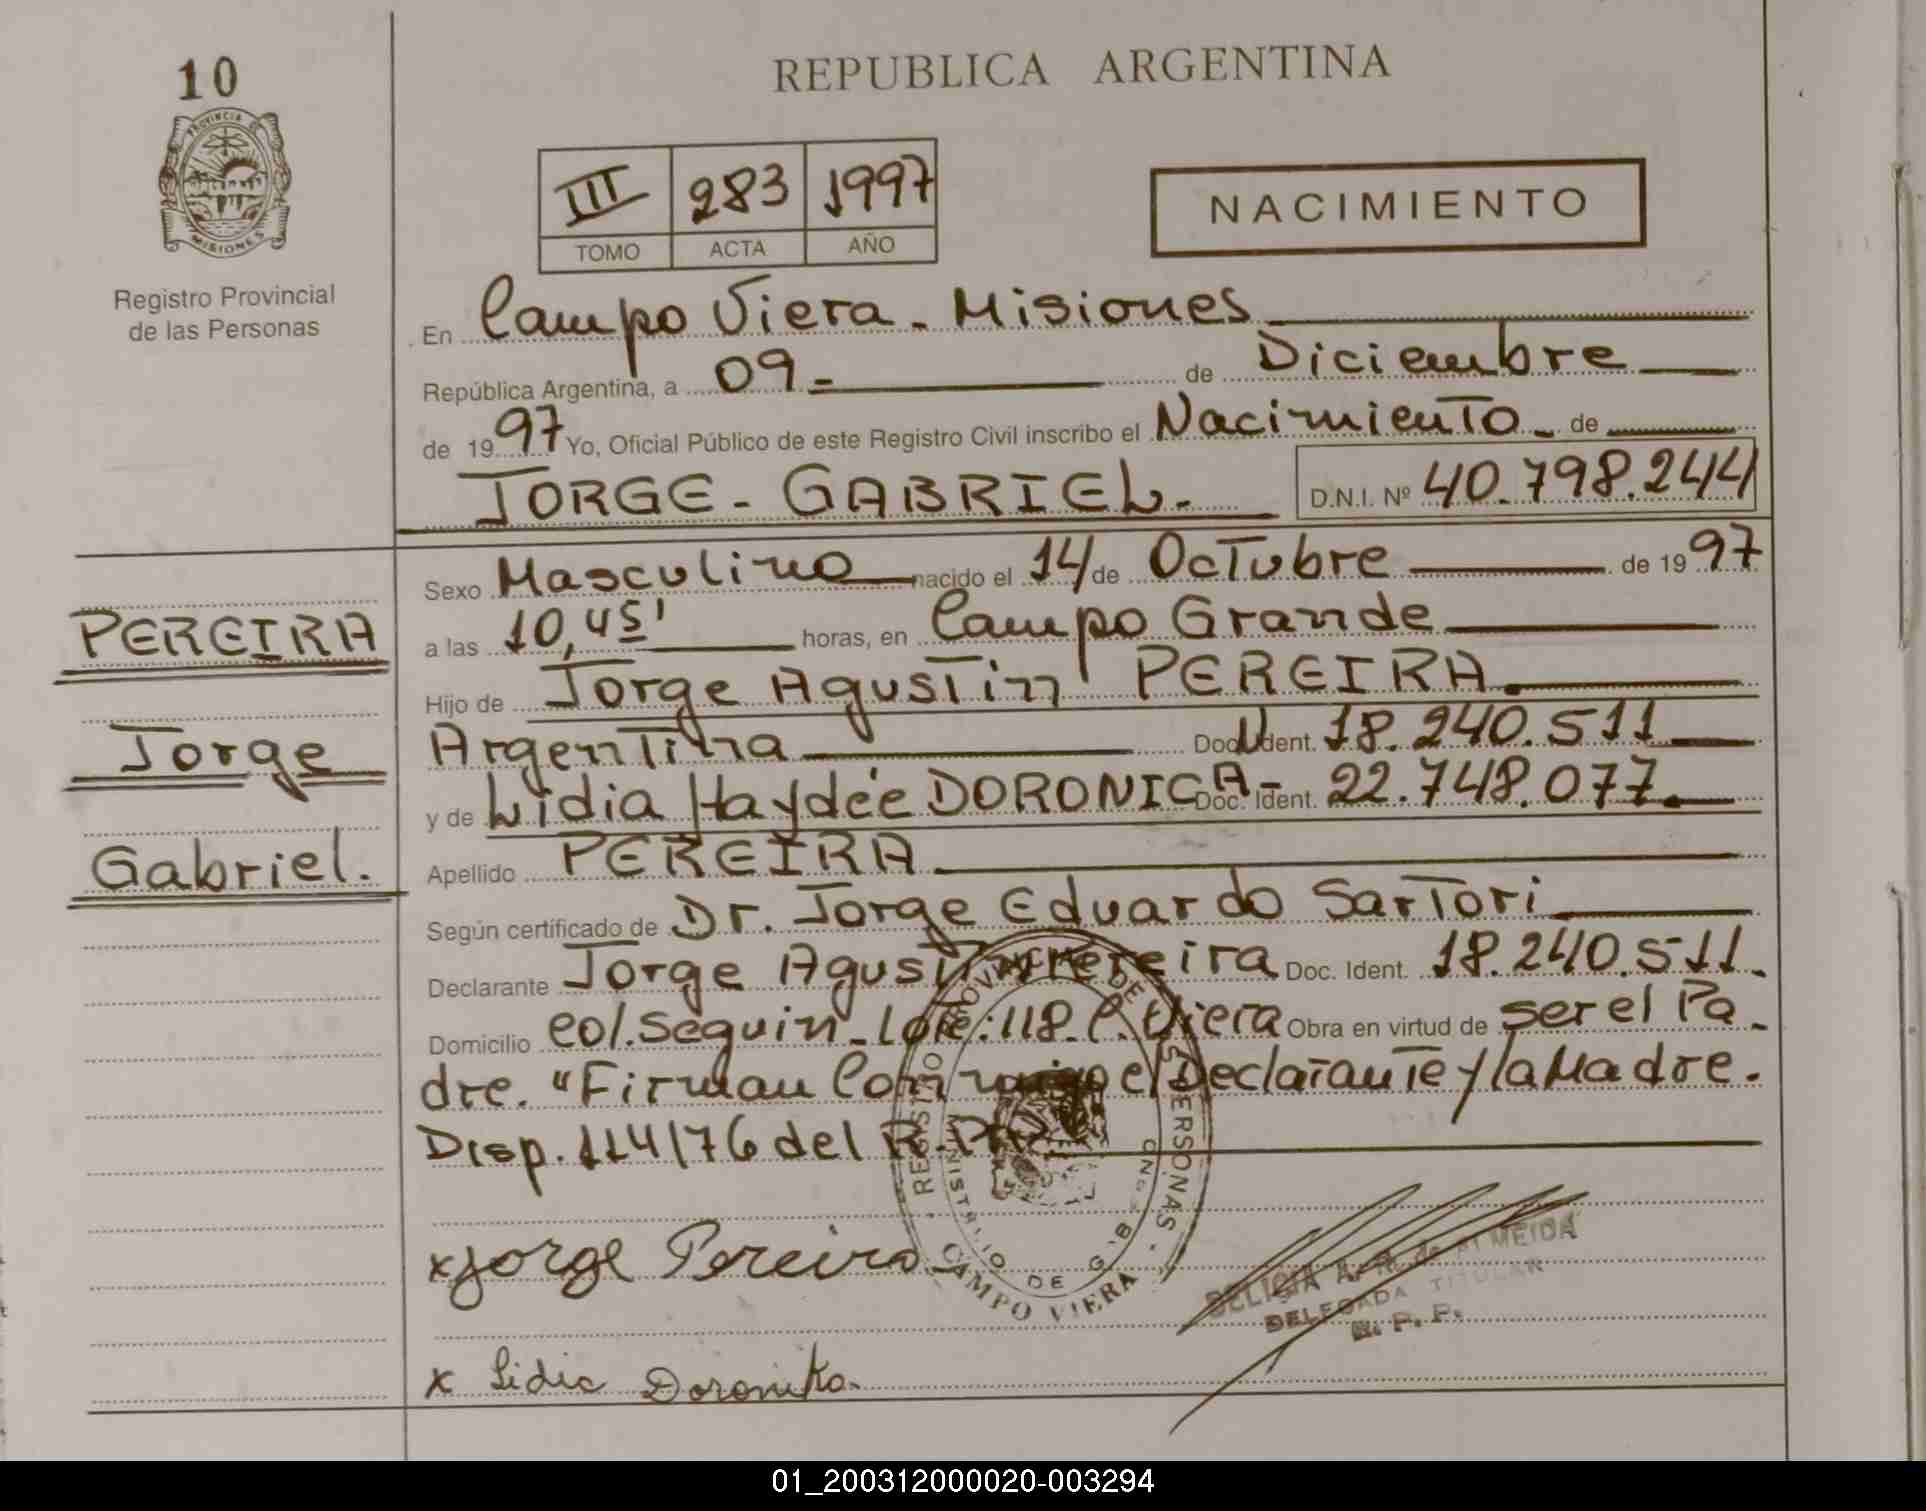 10
REPUBLICA ARGENTINA
PROVINCIA DE
MISIONES
III 283 1997
TOMO ACTA AÑO
NACIMIENTO
Registro Provincial
de las Personas
En Campo Viera - Misiones
República Argentina, a 09 - de Diciembre
de 1997 Yo, Oficial Público de este Registro Civil inscribo el Nacimiento - de
JORGE - GABRIEL - D.N.I. Nº 40.798.244
PEREIRA
Jorge
Gabriel.
Sexo Masculino nacido el 14 de Octubre de 1997
a las 10,45' horas, en Campo Grande
Hijo de Jorge Agustin PEREIRA
Argentina Doc. Ident. 18.240.511
y de Lidia Haydée DORONICA - Doc. Ident. 22.748.077.
Apellido PEREIRA
Según certificado de Dr. Jorge Eduardo Sartori
Declarante Jorge Agustin Pereira Doc. Ident. 18.240.511.
Domicilio Col. Seguin - Lote: 118. C. Viera Obra en virtud de ser el Pa -
dre. "Firman Conmigo el Declarante y la Madre.
Disp. 114/76 del R.P.P.
REGISTRO PROVINCIAL DE LAS PERSONAS
MINISTERIO DE GOB
CAMPO VIERA
x Jorge Pereira
DELICIA A. M. de ALMEIDA
DELEGADA TITULAR
R. P. P.
x Lidia Doronika
01_200312000020-003294